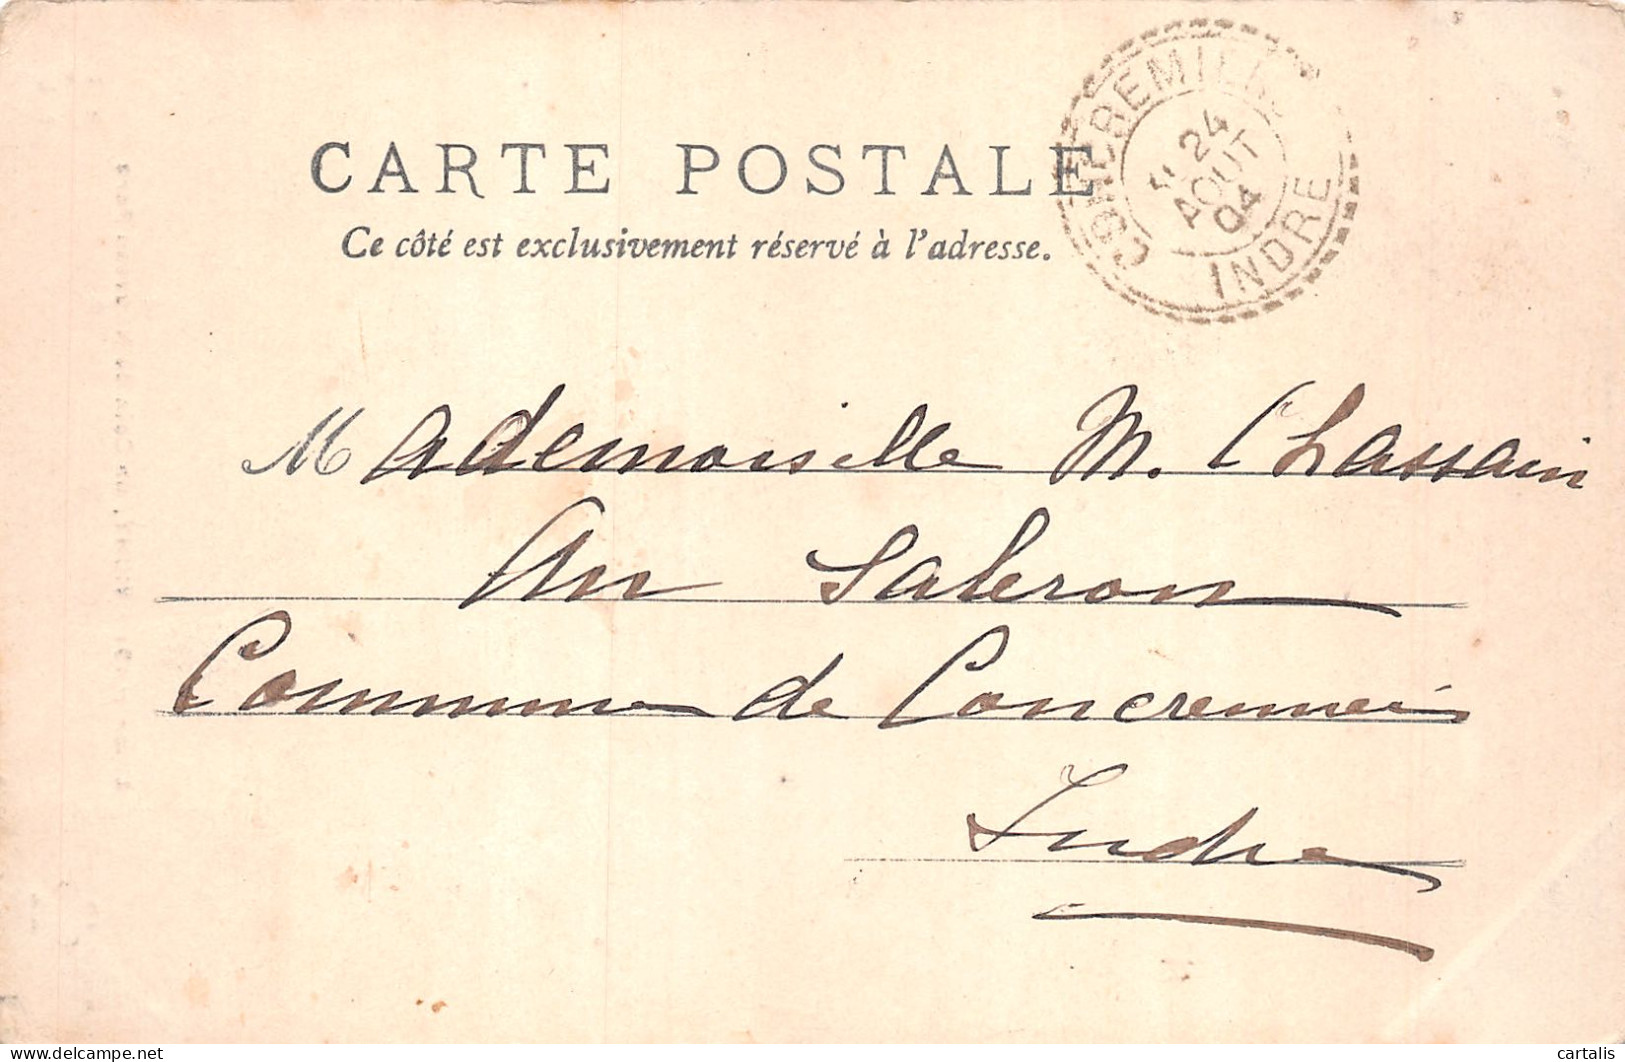 CARTE POSTALE
Ce côté est exclusivement réservé à l'adresse.
CONCREMIERS
24
AOUT
04
INDRE
Mademoiselle M. Chassain
Au Saleron
Commune de Concremiers
Indre
www.delcampe.net
cartalis